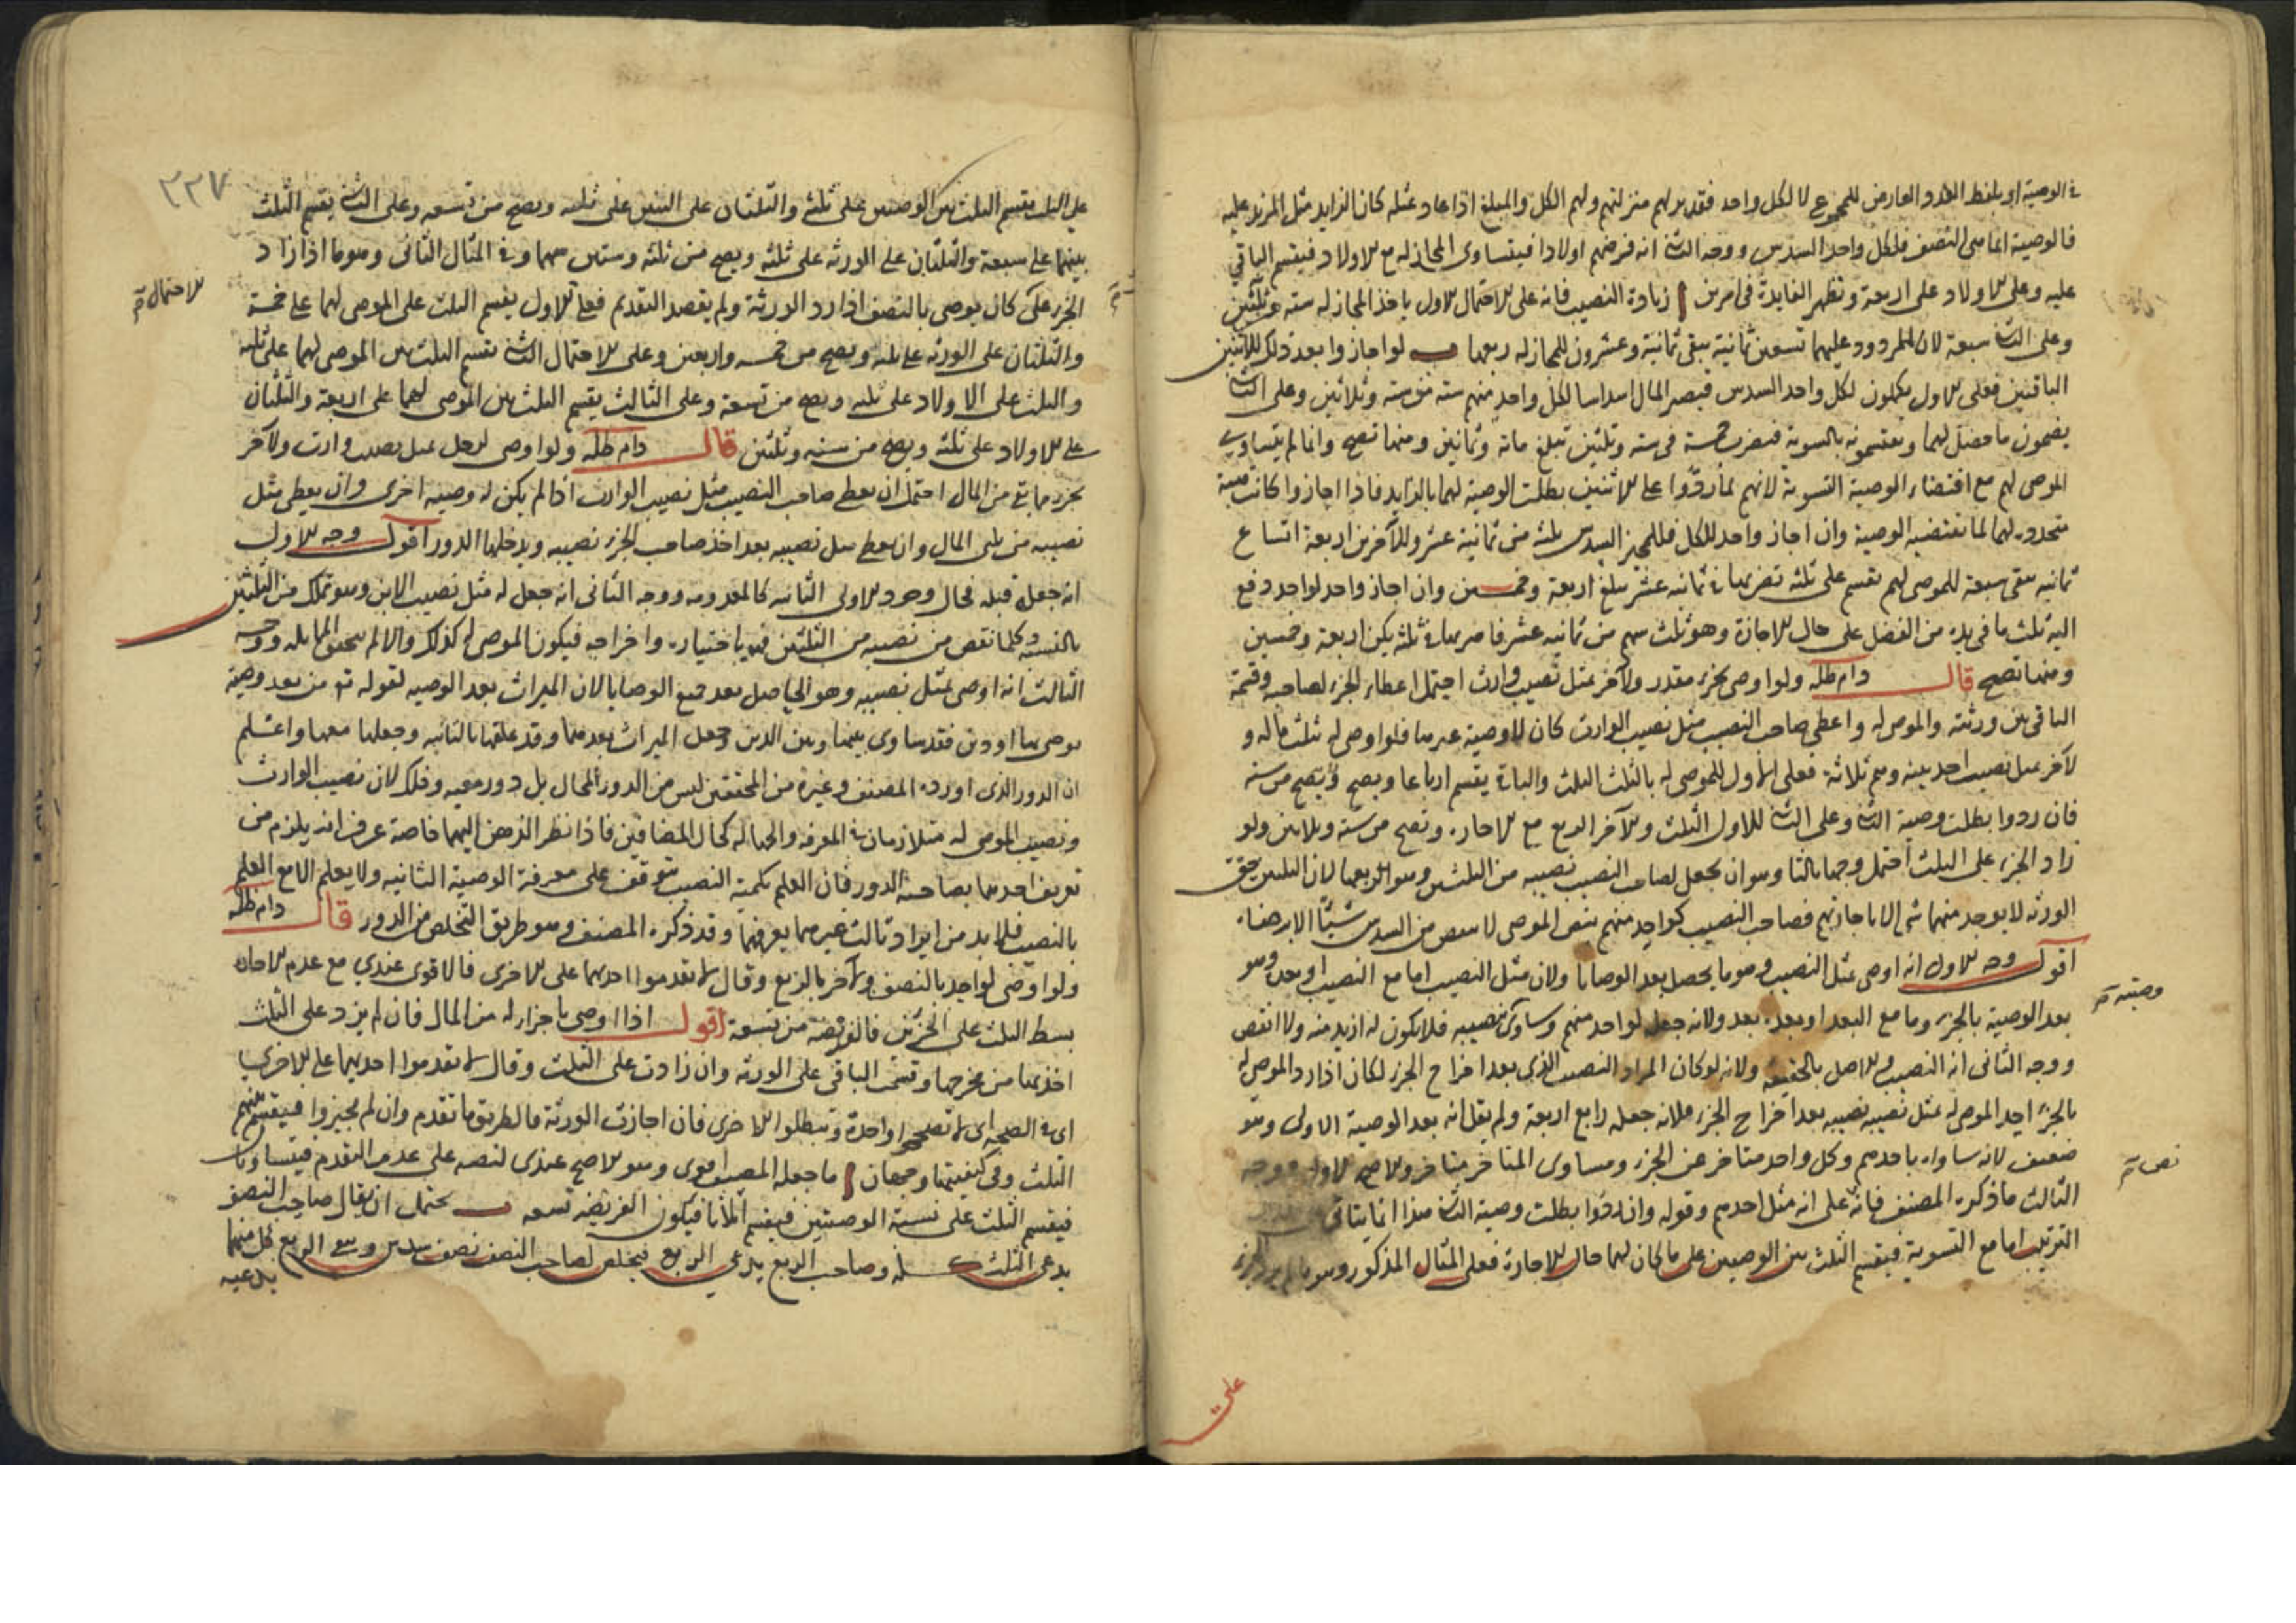 في الوصية او بلفظ العدد والعارض للمجموع لا لكل واحد فقد برلهم منزلتهم ولهم الكل والمبلغ اذا عاد عثله كان الزايد مثل المزيد عليه
فالوصية انما هى النصف فلكل واحد السدس ووجه الثانى انه فرضهم اولادا فيتساوى المجاز له مع الاولاد فيقسم الباقي
عليه وعلى الاولاد على اربعة وتظهر الفايدة فى امرين ا زيادة النصيب فانه على الاحتمال الاول ياخذ المجاز له ستة وثلثين
وعلى الثانى سبعة لان للمردود عليهما تسعين ثمانية يبقى ثمانية وعشرون للمجاز له ربعها ب لو اجازوا بعد ذلك للاثنين
الباقيين فعلى الاول يكملون لكل واحد السدس فيصير المال اسداسا لكل واحد منهم ستة من ستة وثلاثين وعلى الثانى
يضمون ما فضل لهما ويقتسمونه بالسوية فيضرب خمسة فى ستة وثلثين تبلغ مائة وثمانين ومنها تصح وانما لم يتساوى
الموصى لهم مع اقتضاء الوصية التسوية لانهم لما ردوا على الاثنين بطلت الوصية لهما بالزايد فاذا اجازوا كانت هبة
متجددة لهما لما تقتضيه الوصية وان اجاز واحد للكل فللمجيز السدس ثلثه من ثمانية عشر وللآخرين اربعة اتساع
ثمانيه يبقى سبعة للموصى لهم تقسم على ثلثه تضربها فى ثمانيه عشر تبلغ اربعة وخمسين وان اجاز واحد لواحد دفع
اليه ثلث ما فى يده من الفضل على حال الاجازة وهو ثلث سهم من ثمانيه عشر فاضربها فى ثلثه يكن اربعة وخمسين
ومنها تصح قال دام ظله ولو اوصى بجزء مقدر ولآخر بمثل نصيب وارث احتمل اعطاء الجزء لصاحبه وقسمة
الباقى بين ورثته والموصى له واعطى صاحب النصيب مثل نصيب الوارث كان لا وصية غيرها فلو اوصى له بثلث ماله و
لآخر بمثل نصيب احد بنيه وهم ثلاثة فعلى الاول للموصى له بالثلث الثلث والباقى يقسم ارباعا ويصح من ستة
فان ردوا بطلت وصية الثانى وعلى الثانى للاول الثلث وللآخر الربع مع الاجازة وتصح من ستة وثلاثين ولو
زاد الجزء على الثلث احتمل وجها ثالثا وهو ان يجعل لصاحب النصيب نصيبه من الثلثين وهو الربعها لان الثلثين حق
الورثه لا يوجد منهما شئ الا باجازتهم فصاحب النصيب كواحد منهم بنص الموصى لا ينقص من السدس شيئا الا برضاه
اقول وجه الاول انه اوصى بمثل النصيب وهو ما يحصل بعد الوصايا ولان مثل النصيب اما مع النصيب او بعده وهو
بعد الوصية بالجزء وما مع البعد او بعده بعد ولانه جعله لواحد منهم وساوى نصيبه فلا يكون له ازيد منه ولا انقص
ووجه الثانى انه النصيب الاصل بالحقيقة ولانه لو كان المراد النصيب الذى بعد اخراج الجزء لكان اذا رد الموصى له
بالجزء اخذ الموصى له بمثل نصيبه نصيبه بعد اخراج الجزء فلانه جعله رابع اربعة ولم يقل انه بعد الوصية الاولى وهو
ضعيف لانه ساواه باحدهم وكل واحد متاخر عن الجزء ومساوى المتاخر متاخر والاصح الاول ووجه
الثالث ما ذكره المصنف فانه على انه مثل احدهم وقوله وان ردوا بطلت وصية الثانى هذا انما يتاتى
الترتيب اما مع التسوية فيقسم الثلث بين الوصيين على ما كان لهما حال الاجازة فعلى المثال المذكور وهو ما لم يزد الجزء
وصيته
نص
على
٢٢٧
على الثلث يقسم الثلث بين الوصيين على ثلثه والثلثان على البنين على ثلثه ويصح من تسعه وعلى الثانى يقسم الثلث
بينهما على سبعة والثلثان على الورثه على ثلثه ويصح من ثلثه وستين سهما وفى المثال الثانى وهو ما اذا زاد
الجزء على كان يوصى بالنصف اذا رد الورثة ولم يقصد التقديم فعلى الاول يقسم الثلث على الموصى لهما على خمسة
والثلثان على الورثه على ثلثه ويصح من خمسه واربعين وعلى الاحتمال الثانى يقسم الثلث بين الموصى لهما على ثلثه
والثلث على الاولاد على ثلثه ويصح من تسعة وعلى الثالث يقسم الثلث بين الموصى لهما على اربعة والثلثان
على الاولاد على ثلثه ويصح من ستة وثلثين قال دام ظله ولو اوصى لرجل بمثل نصيب وارث ولآخر
بجزء مما بقى من المال احتمل ان يعطى صاحب النصيب مثل نصيب الوارث اذا لم يكن له وصيه اخرى وان يعطى مثل
نصيبه من ثلثى المال وان يعطى مثل نصيبه بعد اخذ صاحب الجزء نصيبه ويدخلها الدور اقول وجه الاول
انه جعله قبله فحال وجود الاولى الثانيه كالمعدومه ووجه الثانى انه جعل له مثل نصيب الابن وهو يملك من الثلثين
بالنسبة وكلما نقص من نصيبه من الثلثين فهو باختياره واخراجه فيكون الموصى له كذلك والا لم تتحقق المماثله ووجه
الثالث انه اوصى بمثل نصيبه وهو الحاصل بعد جميع الوصايا لان الميراث بعد الوصيه لقوله تع من بعد وصية
يوصى بها او دين فقد ساوى بينها وبين الدين وجعل الميراث بعدهما وقد علقها بالثانيه وجعلها معها واعلم
ان الدور الذى اورده المصنف وغيره من المحققين ليس من الدور المحال بل دور معيه وذلك لان نصيب الوارث
ونصيب الموصى له متلازمان فى المعرفه والجهاله كحال المضافين فاذا نظر الذهن اليهما خاصة عرف انه يلزم من
تعريف احدهما بصاحبه الدور فان العلم بكمية النصيب متوقف على معرفة الوصية الثانيه ولا يعلم الا مع العلم
بالنصيب فلا بد من ايراد ثالث غيرهما يعرفهما وقد ذكره المصنف وهو طريق التخلص من الدور قال دام ظله
ولو اوصى لواحد بالنصف ولآخر بالربع وقال لا تقدموا احدهما على الاخرى فالاقوى عندي مع عدم الاجازه
بسط الثلث على الجزئين فالفريضة من تسعة اقول اذا اوصى باجزاء له من المال فان لم يزد على الثلث
اخذتها من مخرجها وقسمت الباقى على الورثه وان زادت على الثلث وقال لا تقدموا احديهما على الاخرى
اى فى الصحه اى لا تصححوا واحدة وتبطلوا الاخرى فان اجازت الورثة فالطريق ما تقدم وان لم يجيزوا فيقسم بينهم
الثلث وفى كيفيتها وجهان ا ما جعله المصنف اقوى وهو الاصح عندى لنصه على عدم التقدم فيتساويان
فيقسم الثلث على نسبة الوصيتين فيقسم اثلاثا فيكون الفريضه تسعه ب يحتمل ان يقال صاحب النصف
يدعى الثلث كله وصاحب الربع يدعى الربع فيخلص لصاحب النصف نصف سدس وبقى الربع كل منهما
يدعيه
الاحتمال